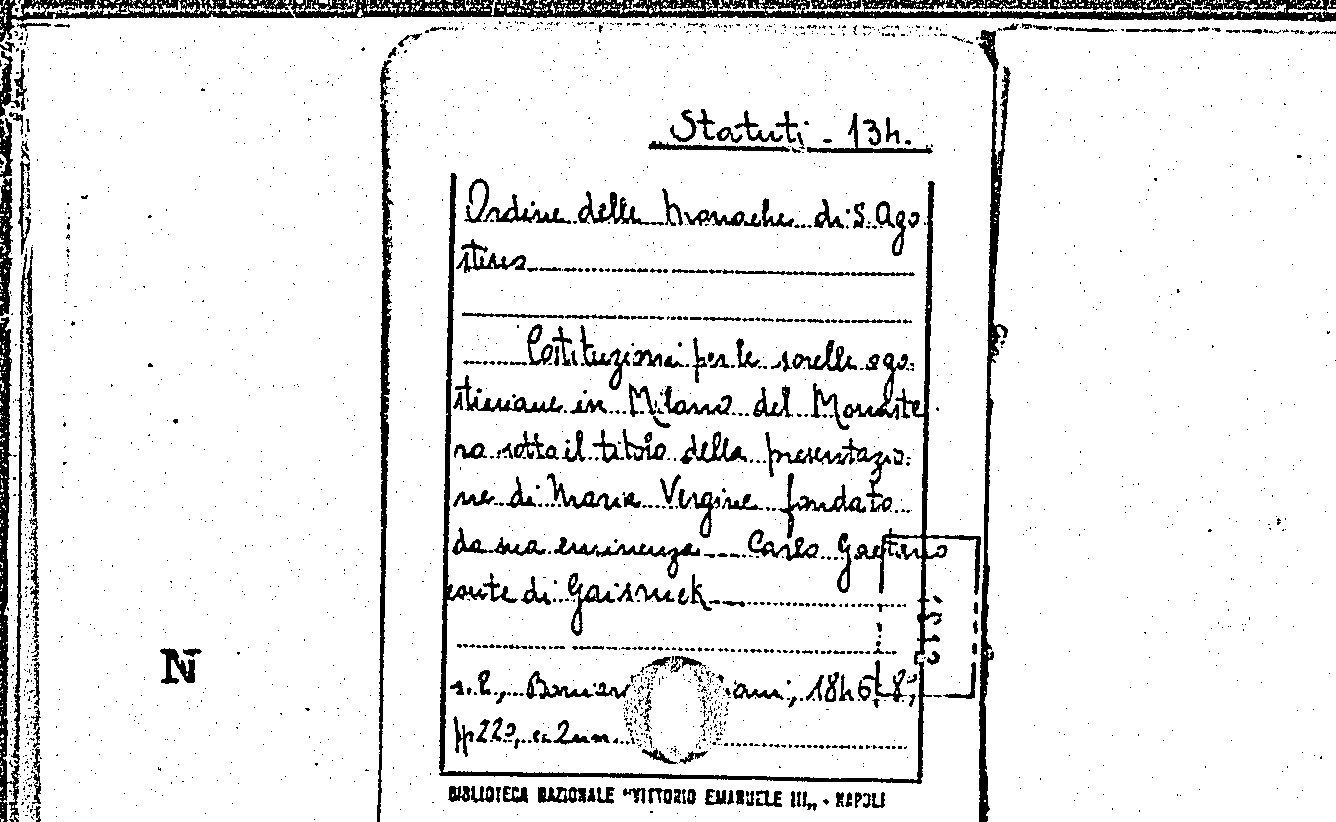 Statuti - 134.
Ordine delle Monache di S. Ago
stino
Costituzioni per le sorelle ago-
stiniane in Milano del Monaste
ro sotto il titolo della presentazio-
ne di Maria Vergine fondato
da sua eminenza Carlo Gaetano
conte di Gaisruck
s.l., 1846, 8°,
pp 220, c. 2 nn.
N
BIBLIOTECA NAZIONALE "VITTORIO EMANUELE III„ - NAPOLI